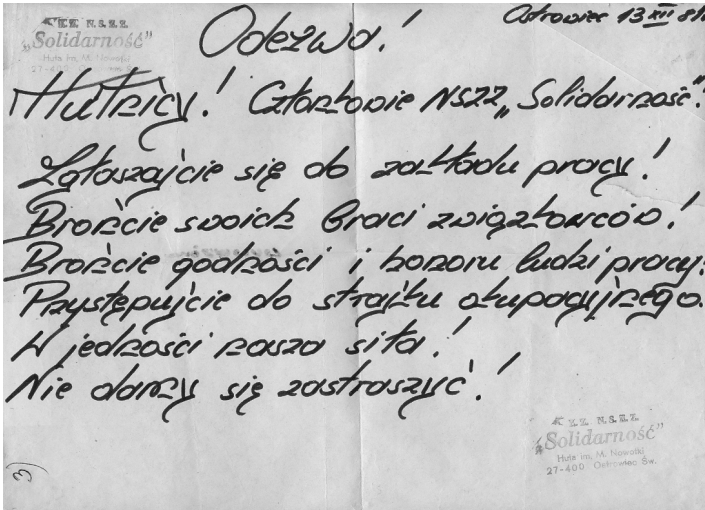 KZ N.S.Z.Z.
„Solidarność”
Huta im. M. Nowotki
27-400 Ostrowiec Św.
Ostrowiec 13 XII 81r
Odezwa!
Hutnicy! Członkowie NSZZ „Solidarność”!
Zgłaszajcie się do zakładu pracy!
Brońcie swoich braci związkowców!
Brońcie godności i honoru ludzi pracy!
Przystępujcie do strajku okupacyjnego.
W jedności nasza siła!
Nie damy się zastraszyć!
3)
KZ N.S.Z.Z.
„Solidarność”
Huta im. M. Nowotki
27-400 Ostrowiec Św.